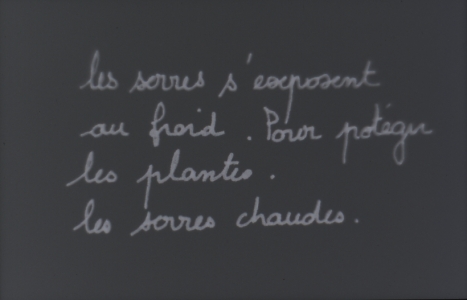 les serres s'exposent
au froid. Pour potéger
les plantes.
les serres chaudes.